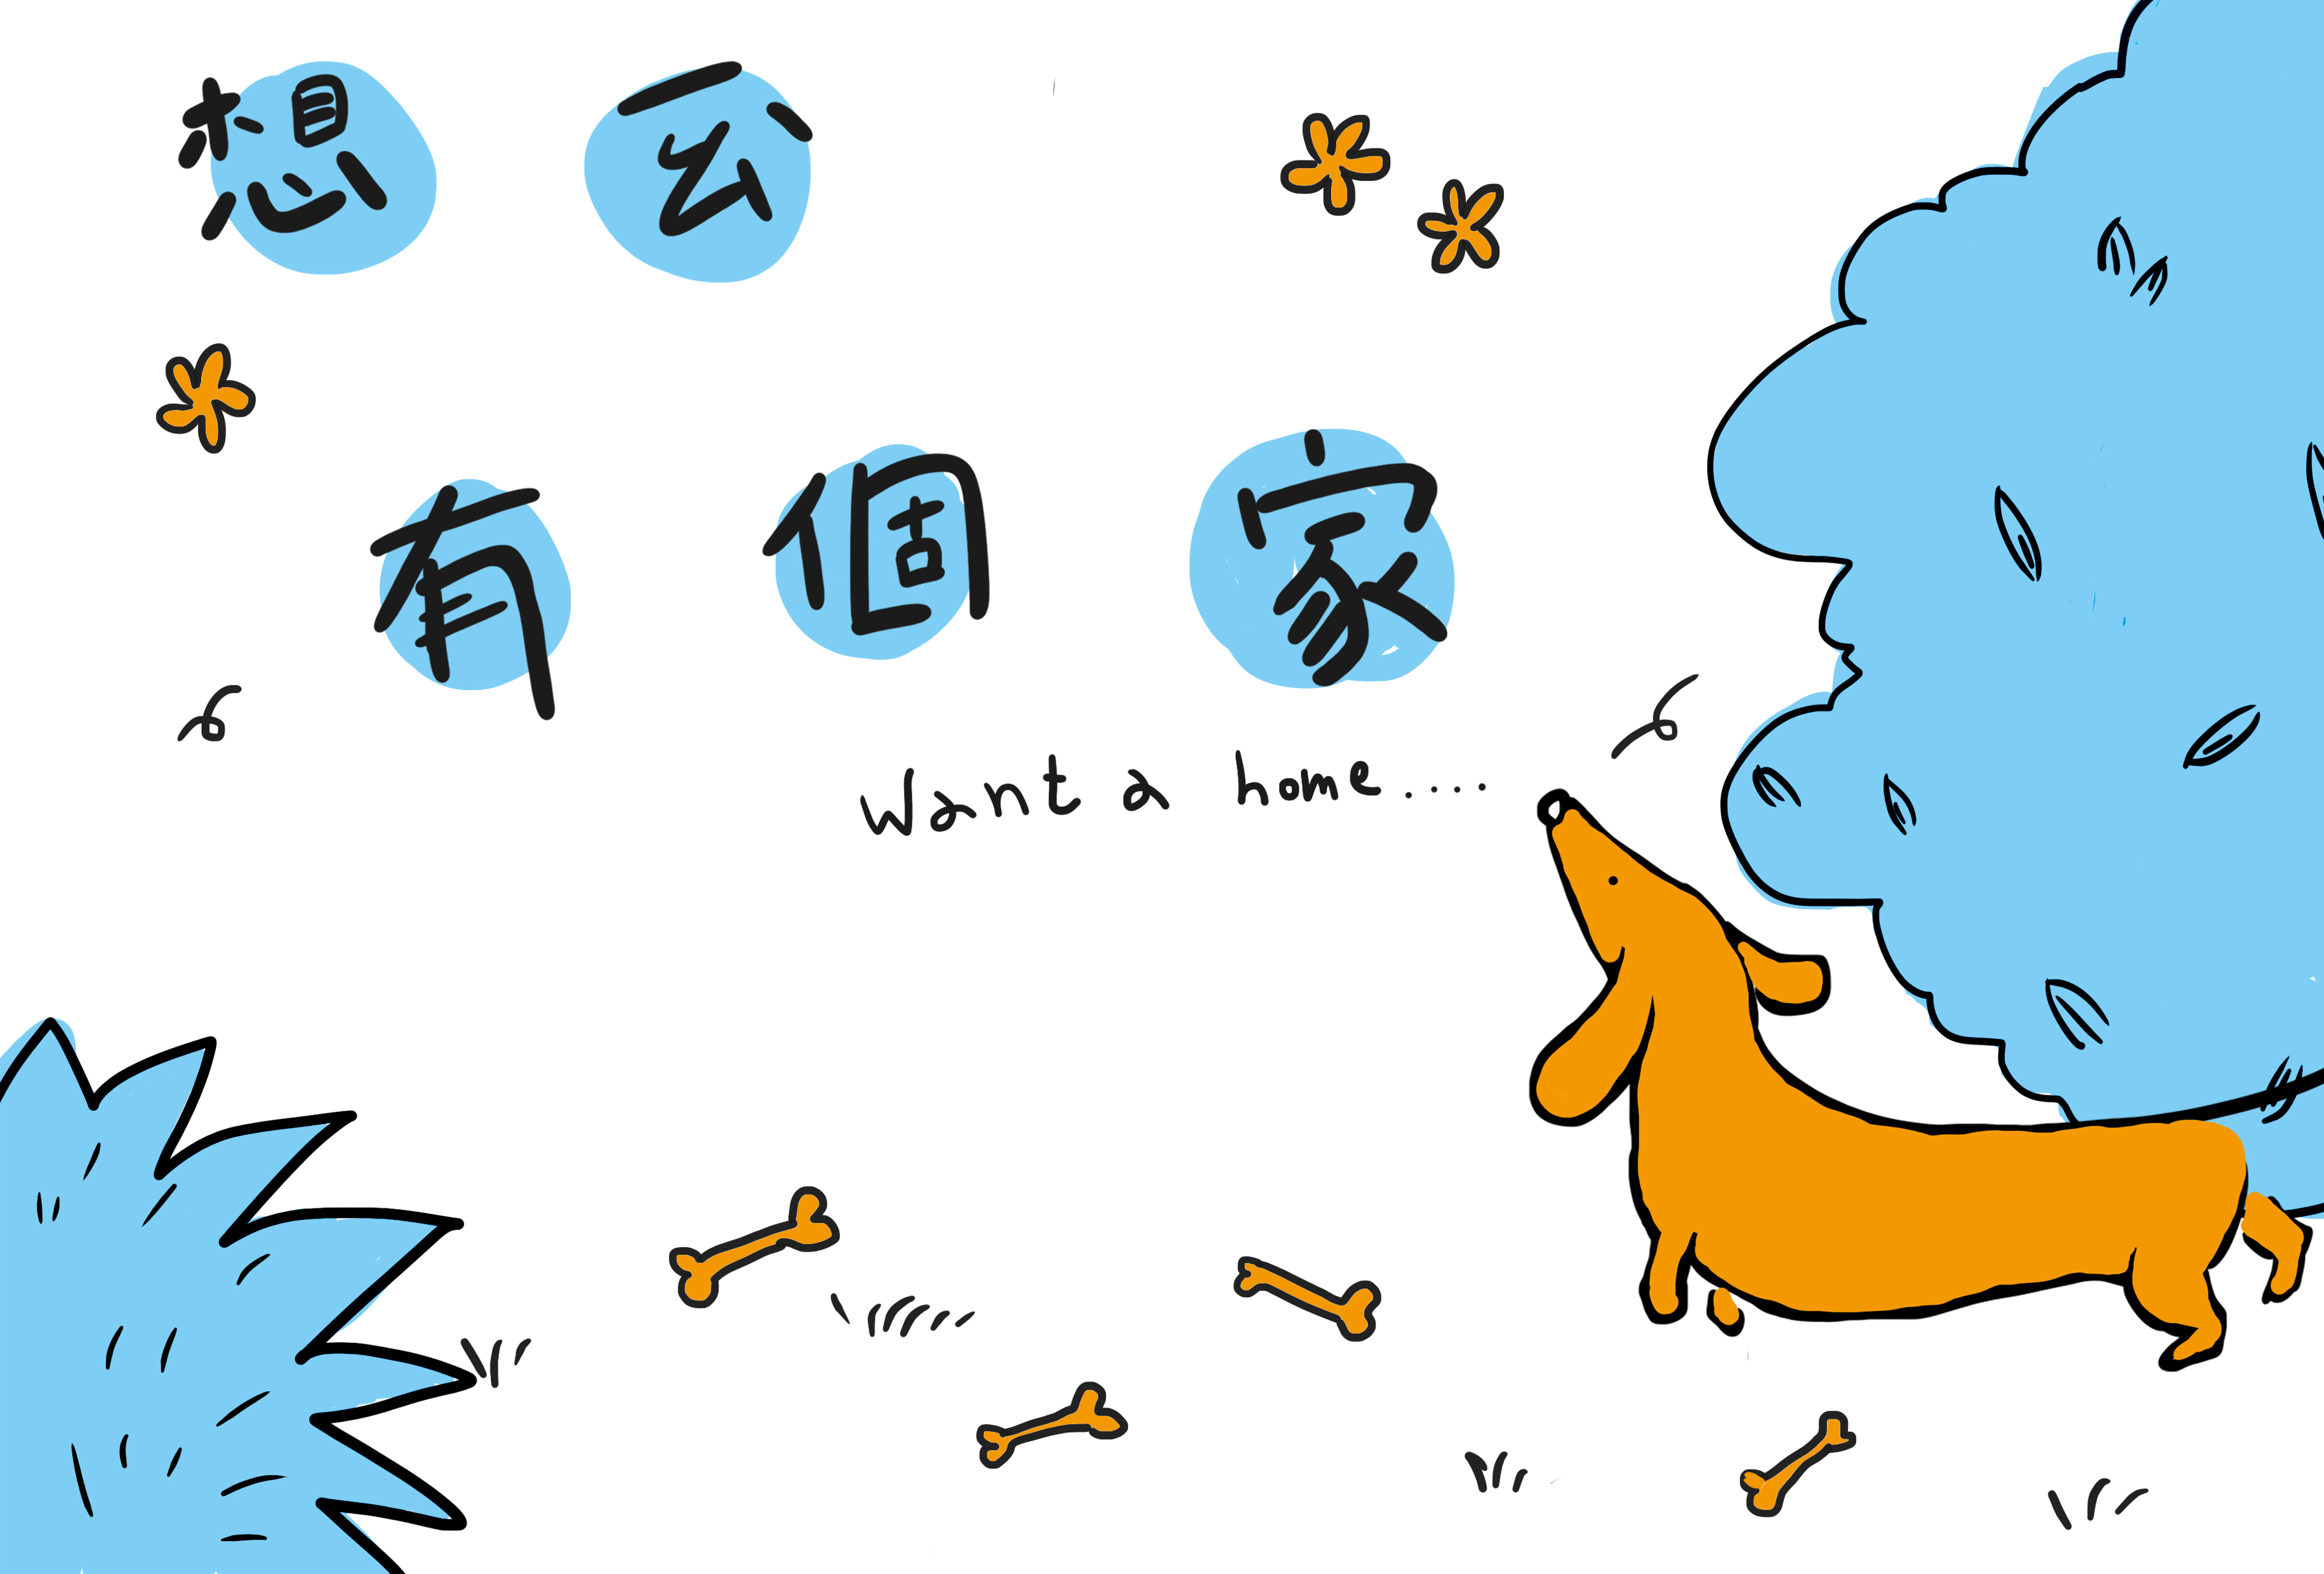 想云
有個家
Want a home....